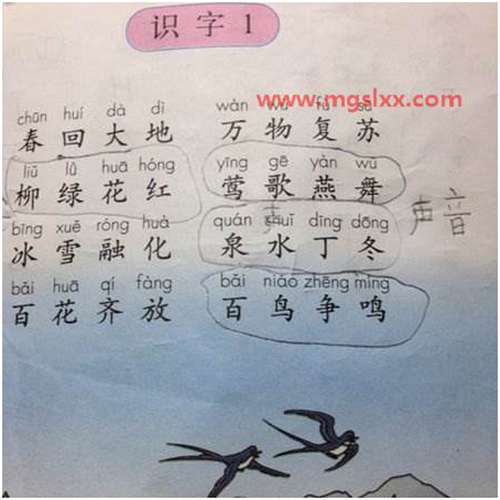 识字1
chūn huí dà dì wàn wù fù sū
www.mgslxx.com
春回大地 万物复苏
liǔ lǜ huā hóng yīng gē yàn wǔ
柳绿花红 莺歌燕舞
声音
bīng xuě róng huà quán shuǐ dīng dōng
冰雪融化 泉水丁冬
bǎi huā qí fàng bǎi niǎo zhēng míng
百花齐放 百鸟争鸣